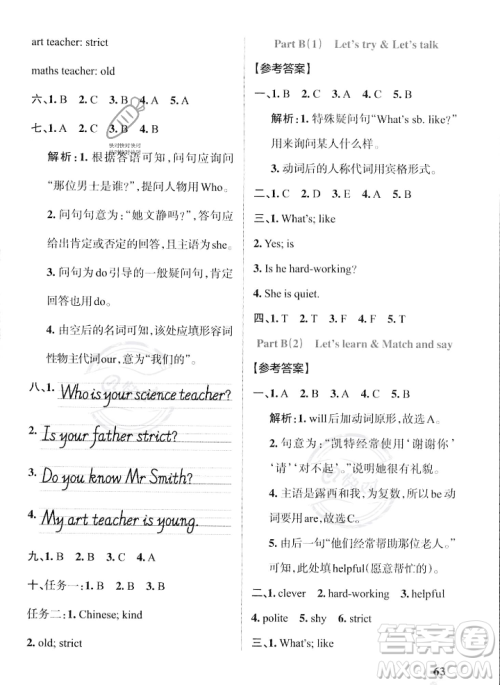 art teacher: strict
maths teacher: old
六、1. B  2. C  3. A  4. B  5. A
七、1. B  2. A  3. B  4. A
解析：1. 根据答语可知，问句应为
“那位男士是谁?”，提问人物用 Who。
2. 问句句意为：“她文静吗?”，答句应
给出肯定或否定的回答，且主语为 she。
3. 问句为 do 引导的一般疑问句，肯定
回答也用 do。
4. 由空后的名词可知，应填形容词
性物主代词 our，表示“我们的”。
八、1. Who is your science teacher?
2. Is your father strict?
3. Do you know Mr Smith?
4. My art teacher is young.
九、1. B  2. B  3. A  4. C
十、任务一：1. B  2. C  3. A
任务二：1. Chinese; kind
2. old; strict
Part B(1)  Let's try & Let's talk
【参考答案】
一、1. B  2. C  3. B
解析：1. 特殊疑问句“What's sb. like?”
用来询问某人什么样。
3. 动词后的人称代词用宾格形式。
二、1. C  2. E  3. D  4. B  5. A
三、1. What's; like
2. Yes; is
3. Is he hard-working?
4. She is quiet.
四、1. T  2. F  3. F  4. F  5. T
Part B(2)  Let's learn & Match and say
【参考答案】
一、1. A  2. B  3. B  4. C  5. A
解析：1. will后加动词原形，故选A。
2. 句意为：“凯特经常使用‘谢谢你’
‘请’‘对不起’。”说明她很有礼貌。
4. 主语是露西和我，为复数，所以be动
词要用are，故选C。
5. 由后一句“他们经常帮助那位老人。”
可知，应选helpful(愿意帮忙的)。
二、1. clever  2. hard-working  3. helpful
4. polite  5. shy  6. strict
三、1. What's; like
63
答案圈
MXQE.COM